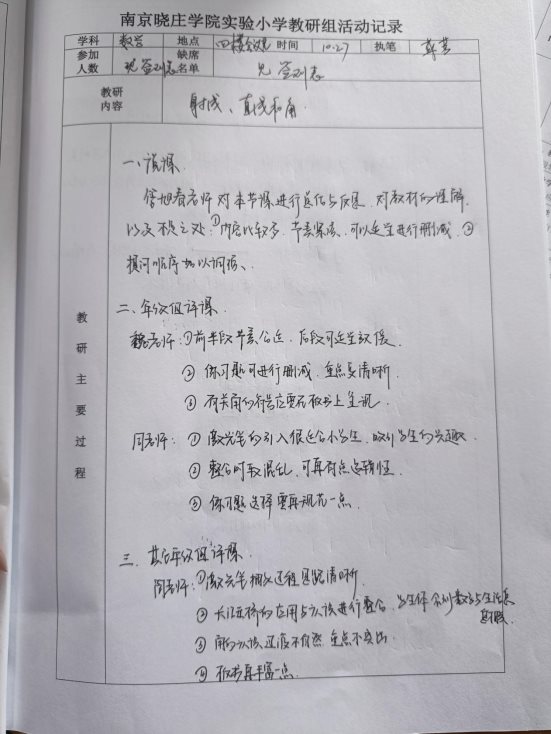 南京晓庄学院实验小学教研组活动记录
学科 数学 地点 四楼会议室 时间 10.27 执笔
参加人数 见签到表 缺席名单 见签到表
教研内容 射线、直线和角
教研主要过程
一、说课
老师对本节课进行总结与反思,对教材的理解,
以及不足之处:①内容比较多,节奏紧凑,可以适当进行删减 ②
提问顺序加以调换、
二、年级组评课
魏老师:①前半段节奏合适,后段可适当放慢
② 练习题可进行删减,重点要清晰
③ 有关角的符号应要在板书上呈现
周老师:① 激光笔的引入很适合小学生,吸引学生的兴趣.
② 整合时较混乱,可再有点逻辑性
③ 练习题选择要再规范一点.
三、其它年级组评课
周老师:①激光笔概念过程思路清晰
② 长江大桥的应用与认识进行整合,学生体会到数学与生活息息相关.
③ 角的认识过渡不自然,重点不突出
④ 板书再丰富一点